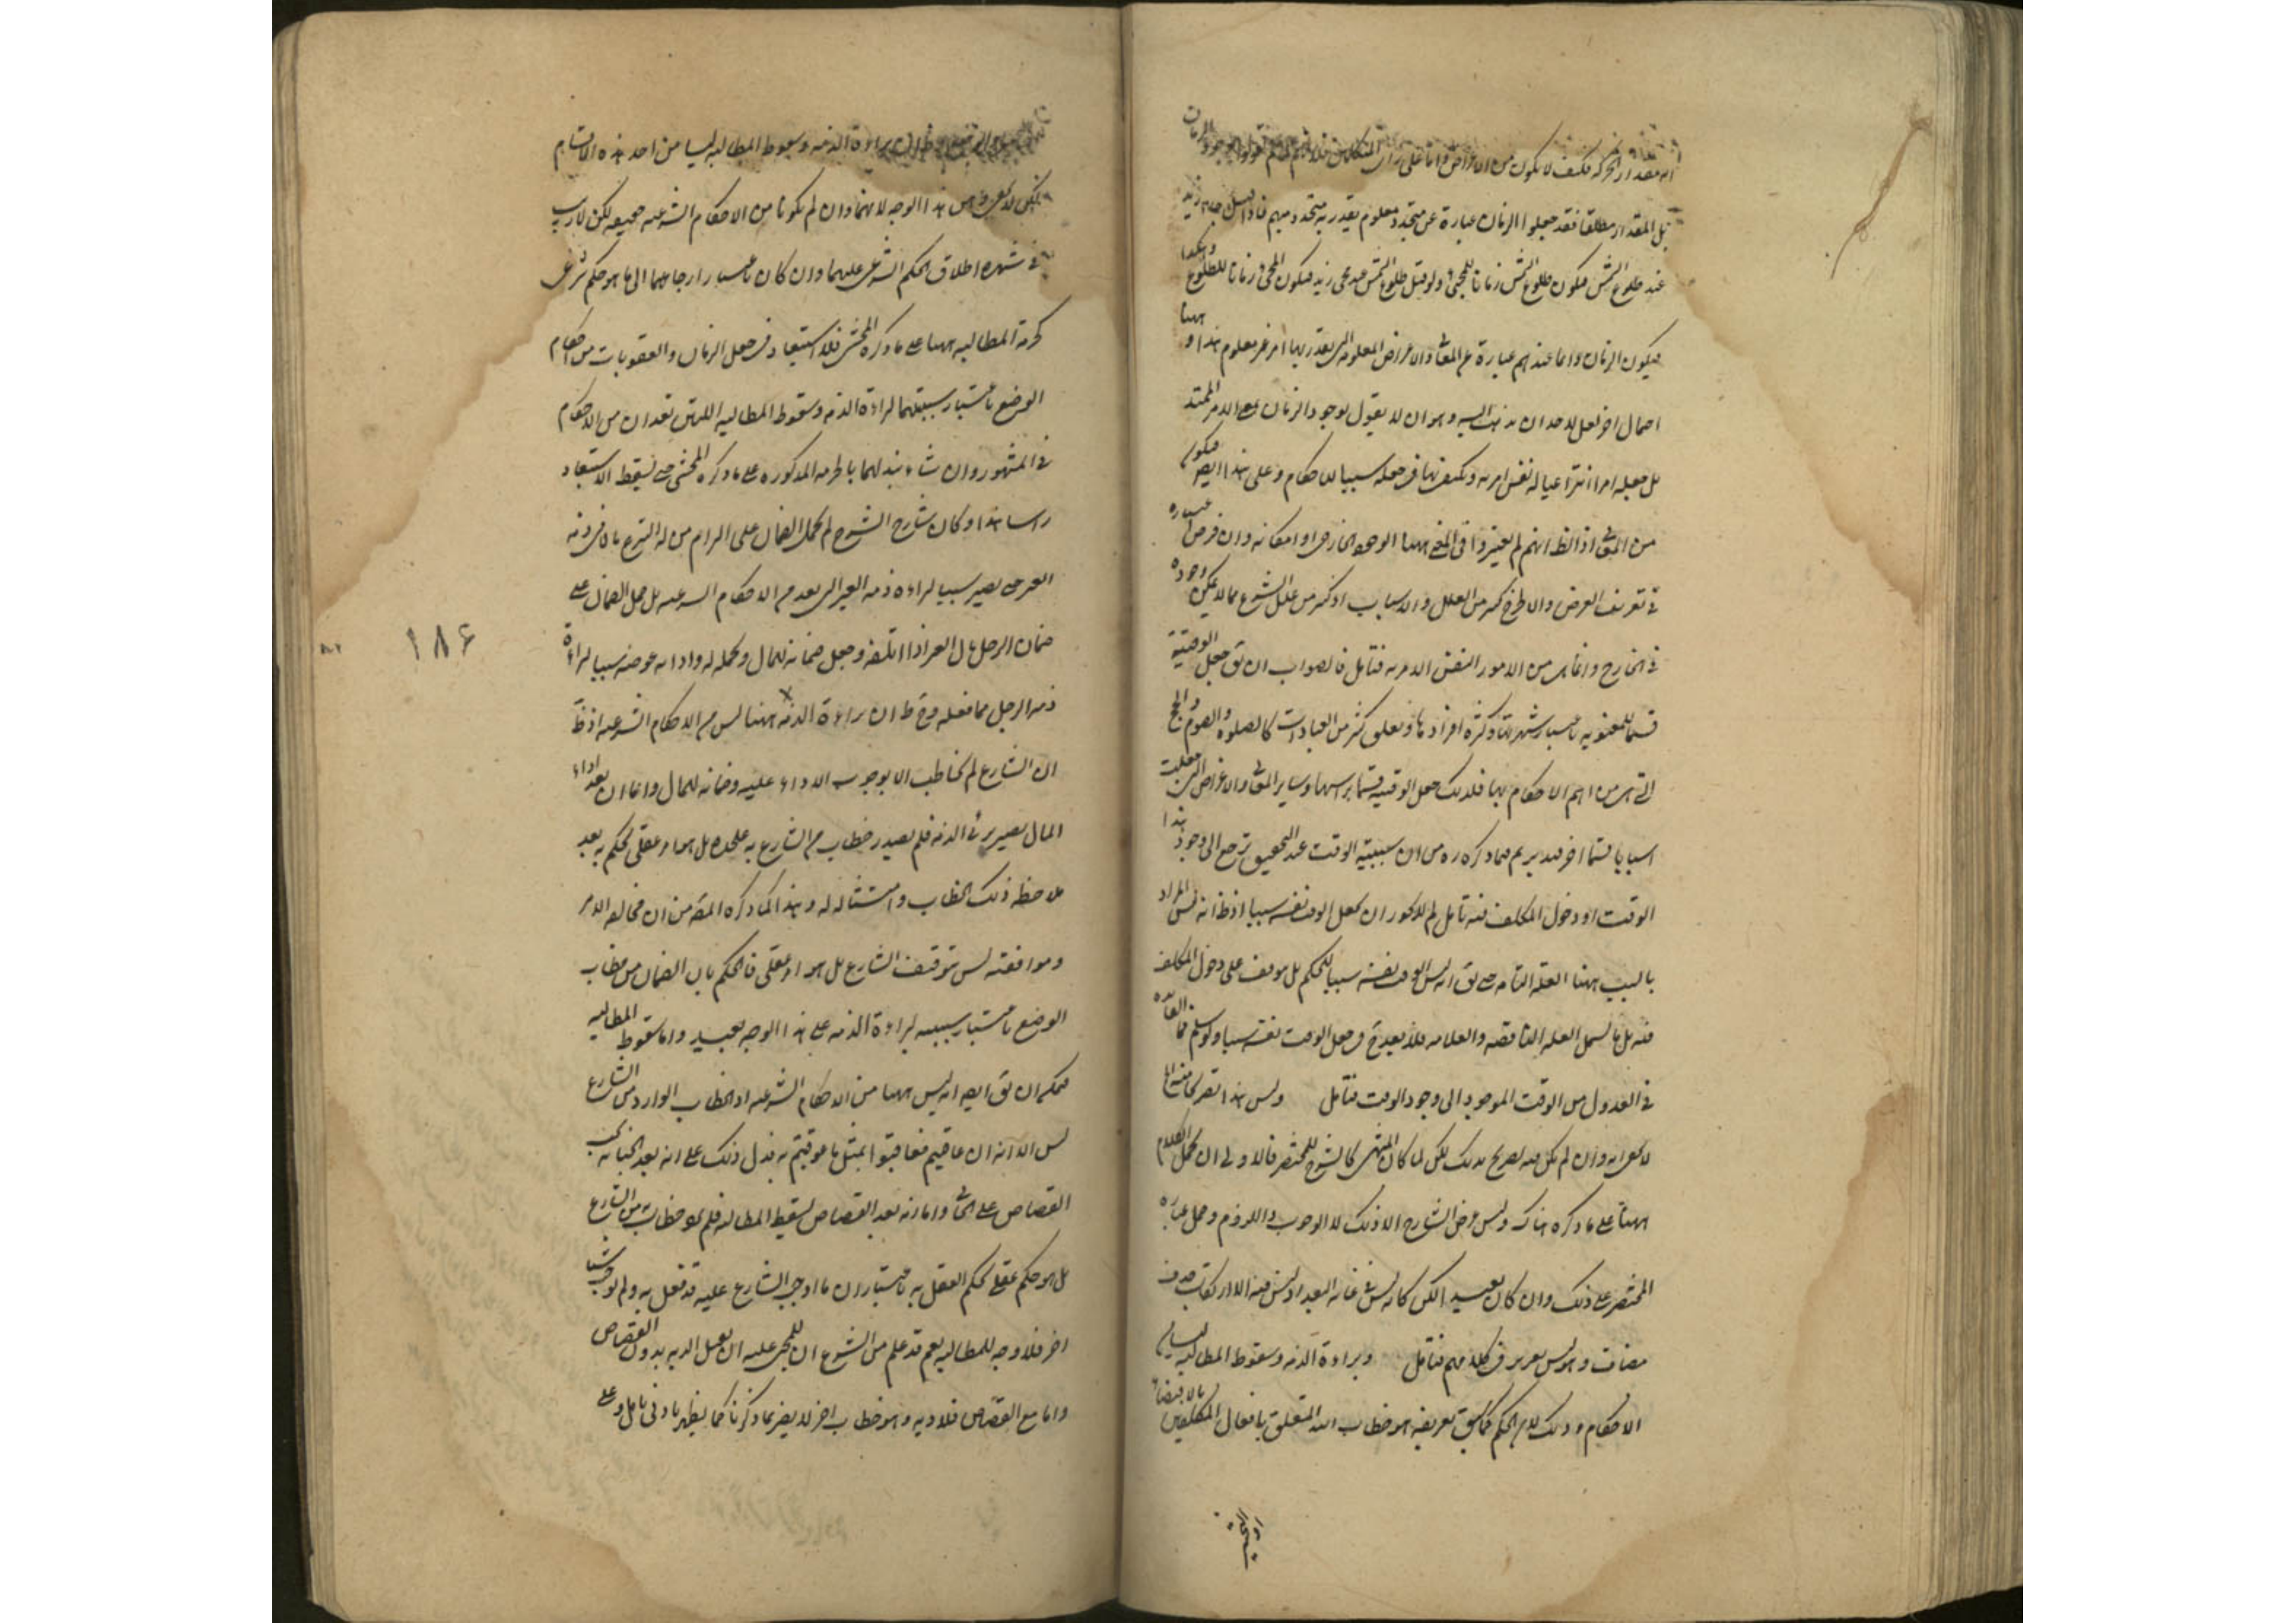 انه مقدار الحركة فكيف لا يكون من الاعراض واما على راى المتكلمين فلانهم
بل المقدار مطلقا فقد جعلوا الزمان عبارة عن متجدد معلوم يقدر به متجدد مبهم فاذا قيل جاء زيد
عند طلوع الشمس فيكون طلوع الشمس زمانا للمجئ ولو قيل طلوع الشمس عند مجئ زيد فيكون المجئ زمانا للطلوع وهكذا
فيكون الزمان دائما عندهم عبارة عن المعانى والاعراض المعلومة التى يقدر بها امر غير معلوم هذا وههنا
احتمال اخر لعل لاحد ان يذهب اليه وهو ان لا يقول بوجود الزمان بمعنى الامر الممتد
بل جعله امرا انتزاعيا له نفس امرية ويكتفى بها فى جعله سببا للاحكام وعلى هذا ايضا فيكون
من المعانى اذ الظ انهم لم يعتبروا فى المعنى ههنا الوجود الخارجى او امكانه وان فرض اعتباره
فى تعريف العرض والا لخرج كثير من العلل والاسباب اذ كثير من علل الشرع مما لا يمكن وجوده
فى الخارج وانما هى من الامور النفس الامرية فتامل فالصواب ان يق جعل الوقتية
قسما للمعنوية باعتبار شهرتها وكثرة افرادها وتعلق كثير من العبادات كالصلوة والصوم والحج
التى هى من اهم الاحكام بها فلذلك جعل الوقتية قسما براسها وساير المعانى والاعراض التى جعلت
اسبابا قسما اخر فتدبر ثم ما ذكره ره من ان سببية الوقت عند التحقيق ترجع الى وجود هذا
الوقت او دخول المكلف فيه تامل لم لا يجوز ان يجعل الوقت نفسه سببا اذ ظ انه ليس المراد
بالسبب ههنا العلة التامة حتى يق انه ليس الوقت نفسه سببا للحكم بل موقف على دخول المكلف
فيه بل ما يشمل العلة الناقصة والعلامة فلا بعد فى جعل الوقت نفسه سببا ولو سلم فما الفائدة
فى العدول من الوقت الموجود الى وجود الوقت فتامل وليس هذا تصريحا منه اه
لا يخفى انه وان لم يكن فيه تصريح بذلك لكن لما كان المنتهى كالشرح للمختصر فالاولى ان يحمل الكلام
ههنا على ما ذكره هناك وليس غرض الشارح الا ذلك لا الوجوب واللزوم وحمل عبارة
المختصر على ذلك وان كان بعيدا لكن كانه ليس فى غاية البعد اذ ليس فيه الا ارتكاب حذف
مضاف وهو ليس بعزيز فى كلامهم فتامل وبراءة الذمة وسقوط المطالبة ليسا من
الاحكام وذلك لان الحكم كما سبق تعريفه هو خطاب الله المتعلق بافعال المكلفين بالاقتضاء
او التخيير
براءة الذمة وسقوط المطالبة ليسا من احد هذه الاقسام
لكن لا يخفى هذا الوجه لانهما وان لم يكونا من الاحكام الشرعية حقيقة لكن لا ريب
فى شهرة اطلاق الحكم الشرعى عليهما وان كان باعتبار ارجاعهما الى ما هو حكم شرعى
كحرمة المطالبة ههنا على ما ذكره المحشى فلا استبعاد فى جعل الزمان والعقوبات من احكام
الوضع باعتبار سببيتهما لبراءة الذمة وسقوط المطالبة اللتين تعدان من الاحكام
فى المشهور وان شاء بدلهما بالحرمة المذكورة على ما ذكره المحشى حتى يسقط الاستبعاد
راسا هذا وكان شارح الشرح لم يحمل الضمان على الزام من له التبرع ما فى ذمة
الغير حتى يصير سببا لبراءة ذمة الغير التى تعد من الاحكام الشرعية بل حمل الضمان على
ضمان الرجل مال الغير اذا اتلفه وجعل ضمانه للمال وتحمله له واداءه عوضه سببا لبراءة
ذمة الرجل مما فعله وح ظ ان براءة الذمة ههنا ليس من الاحكام الشرعية اذ ظ
ان الشارع لم يخاطب الا بوجوب الاداء عليه وضمانه للمال واما ان بعد اداء
المال يصير برئ الذمة فلم يصدر خطاب من الشارع به على حدة بل هو امر عقلى يحكم به بعد
ملاحظة ذلك الخطاب وامتثاله له وهذا كما ذكره المص من ان مخالفة الامر
وموافقته ليس بتوقيف الشارع بل هو امر عقلى فالحكم بان الضمان من خطاب
الوضع باعتبار سببيته لبراءة الذمة على هذا الوجه بعيد واما سقوط المطالبة
فيمكن ان يق ايضا انه ليس ههنا من الاحكام الشرعية اذ الخطاب الوارد من الشارع
ليس الا انه ان عاقبتم فعاقبوا بمثل ما عوقبتم به فدل ذلك على انه بعد الجناية يجب
القصاص على الجانى واما انه بعد القصاص يسقط المطالبة فلم يقع خطاب به من الشارع
بل هو حكم عقلى يحكم العقل به باعتبار ان ما اوجب الشارع عليه قد فعل به ولم يوجب شيئا
اخر فلا وجه للمطالبة نعم قد علم من الشرع ان للمجنى عليه ان يقبل الدية بدون القصاص
واما مع القصاص فلا دية وهو خطاب اخر لا يضر بما ذكرنا كما يظهر بادنى تامل وعلى
۱۸۶